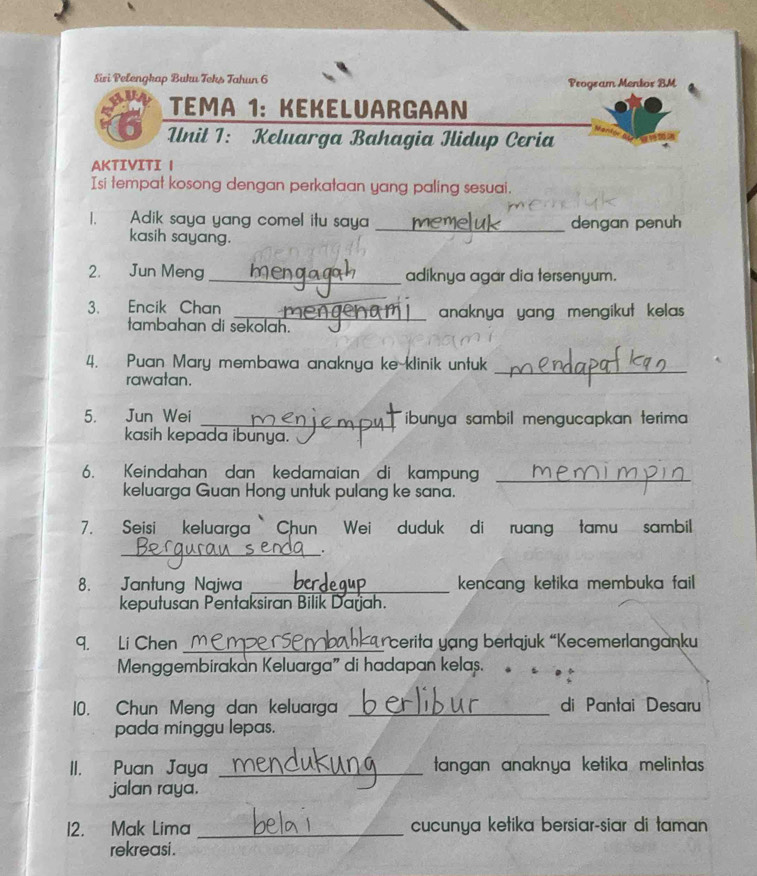 Siri Pelengkap Buku Teks Tahun 6
Program Mentor BM
TAHUN 6
TEMA 1: KEKELUARGAAN
Unit 1: Keluarga Bahagia Hidup Ceria
AKTIVITI 1
Isi tempat kosong dengan perkataan yang paling sesuai.
1. Adik saya yang comel itu saya memeluk dengan penuh
kasih sayang.
2. Jun Meng mengagah adiknya agar dia tersenyum.
3. Encik Chan mengenami anaknya yang mengikut kelas
tambahan di sekolah.
4. Puan Mary membawa anaknya ke klinik untuk mendapatkan
rawatan.
5. Jun Wei menjemput ibunya sambil mengucapkan terima
kasih kepada ibunya.
6. Keindahan dan kedamaian di kampung memimpin
keluarga Guan Hong untuk pulang ke sana.
7. Seisi keluarga Chun Wei duduk di ruang tamu sambil
Bergurau senda.
8. Jantung Najwa berdegup kencang ketika membuka fail
keputusan Pentaksiran Bilik Darjah.
9. Li Chen mempersembahkan cerita yang bertajuk “Kecemerlanganku
Menggembirakan Keluarga” di hadapan kelas.
10. Chun Meng dan keluarga berlibur di Pantai Desaru
pada minggu lepas.
11. Puan Jaya mendukung tangan anaknya ketika melintas
jalan raya.
12. Mak Lima belai cucunya ketika bersiar-siar di taman
rekreasi.